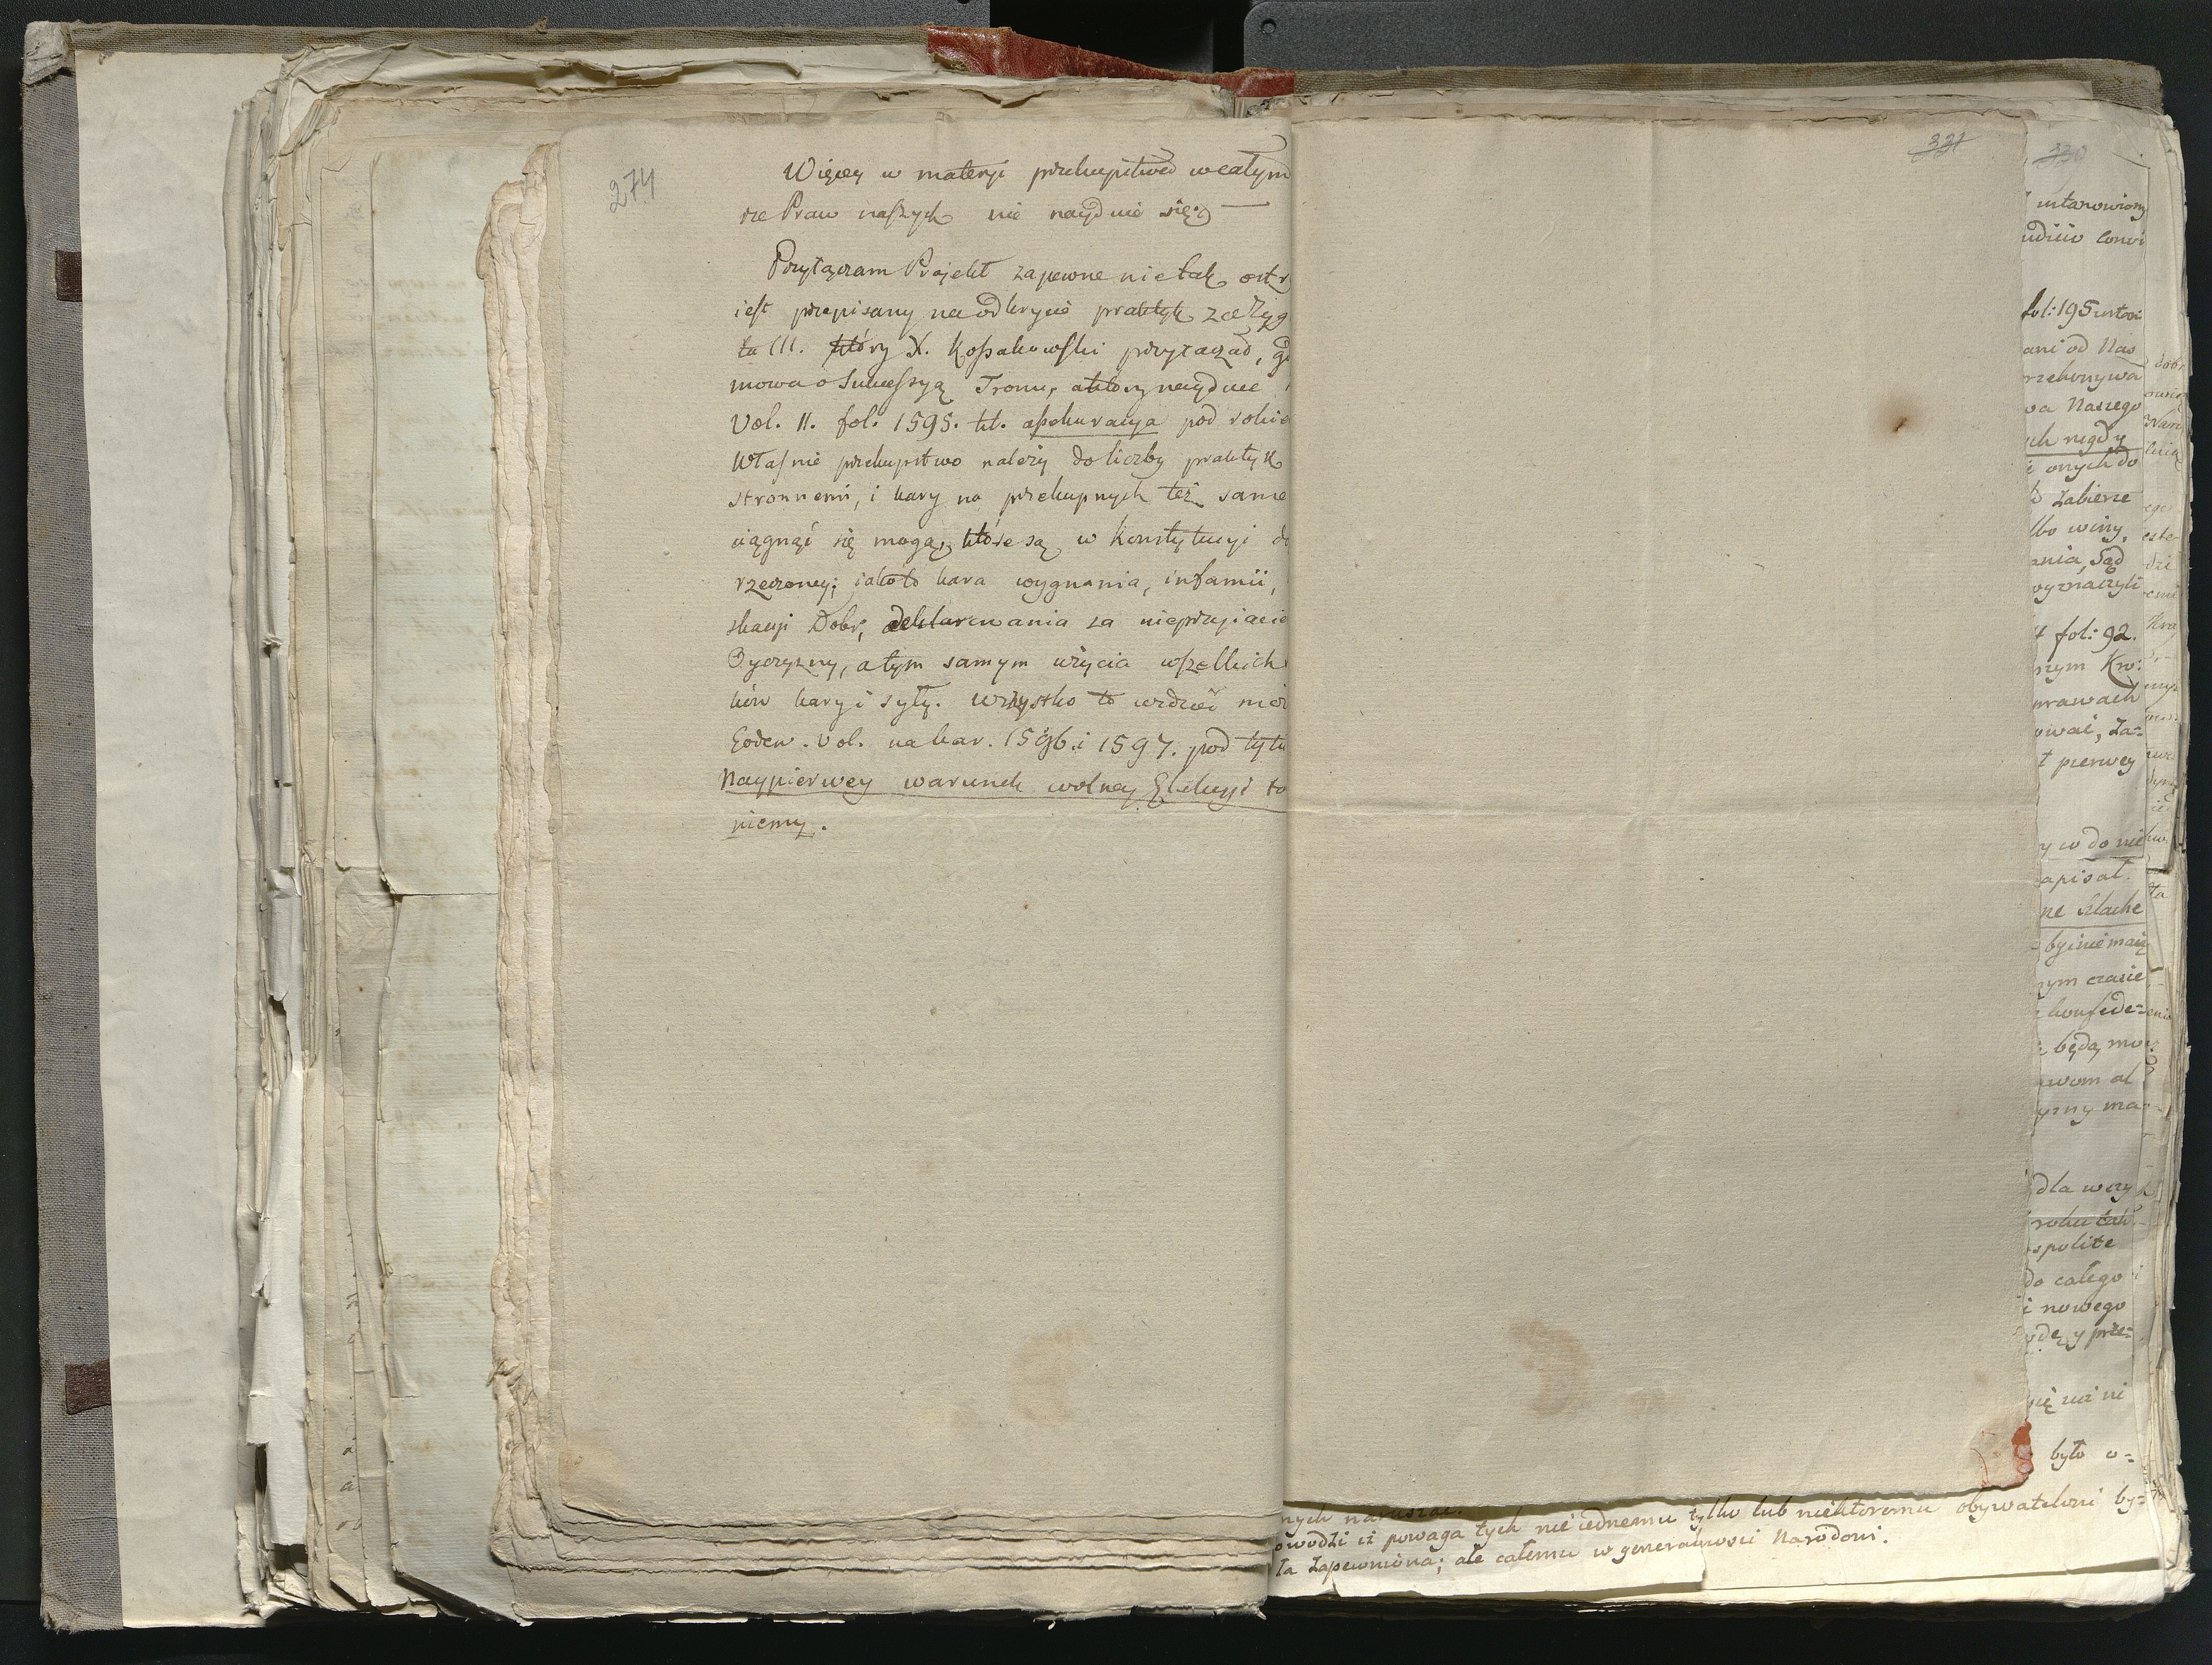 274
Więcey w materyi przekupstwa w całym
rze Praw naszych nie naydzie się.
Przyłączam Projekt zapewne nie tak ostr
iest przepisany na odkrycie praktyk za Zyg
ta III. który X. Kossakowski przytaczał, g
mowa o Sukcessyą Tronu, a który nayduie
Vol. II. fol. 1595. tit. assekuracya pod rokie
Własnie przekupstwo należy do liczby praktyk
stronnemi, i kary na przekupnych też same
ciągnąć się mogą, które są w Konstytucyi d
rzeczoney; jako to kara wygnania, infamii,
skacyi Dobr, deklarowania za nieprzyiacie
Oyczyzny, a tym samym użycia wszelkich
ków kary i syły. Wszystko to widzieć moż
Eodem. Vol. na kar. 1596. i 1597. pod tytu
Naypierwey warunek wolney Elekcyi to
niemy.
331
330
ustanowiony
fol: 195
ani od Nas
rzekonywa
wa Naszego
ch nigdy
i onych do
zabierze
lbo winy,
ania, Sąd
wyznaczyli
fol: 92.
nrawach
ować, Za=
t pierwey
y w do nie
apisał.
ne Szlache
nym czasie
konfede=
będą mo
awom al
yzny ma
dla wszy
roku
spolite
do całego
i nowego
y prze=
było o=
nych naruszać.
owodzi iż powaga tych nie iednemu tylko lub niektoremu obywatelowi by=
ła zapewniona; ale całemu w generalności Narodowi.